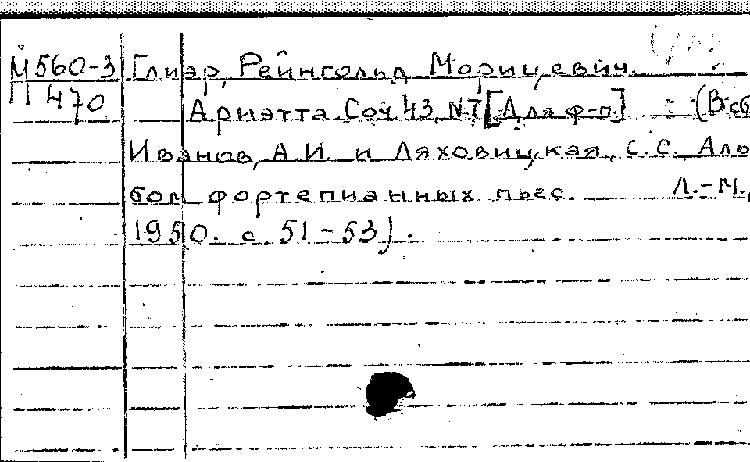 М560-3 Глиэр, Рейнгольд Морицевич.
П 470 Ариэтта. Соч. 43, №7 [Для ф-п.] : (В сб.
Иванов, А.И. и Ляховицкая, С.С. Аль
бом фортепианных пьес. Л.-М.,
1950. с. 51-53).